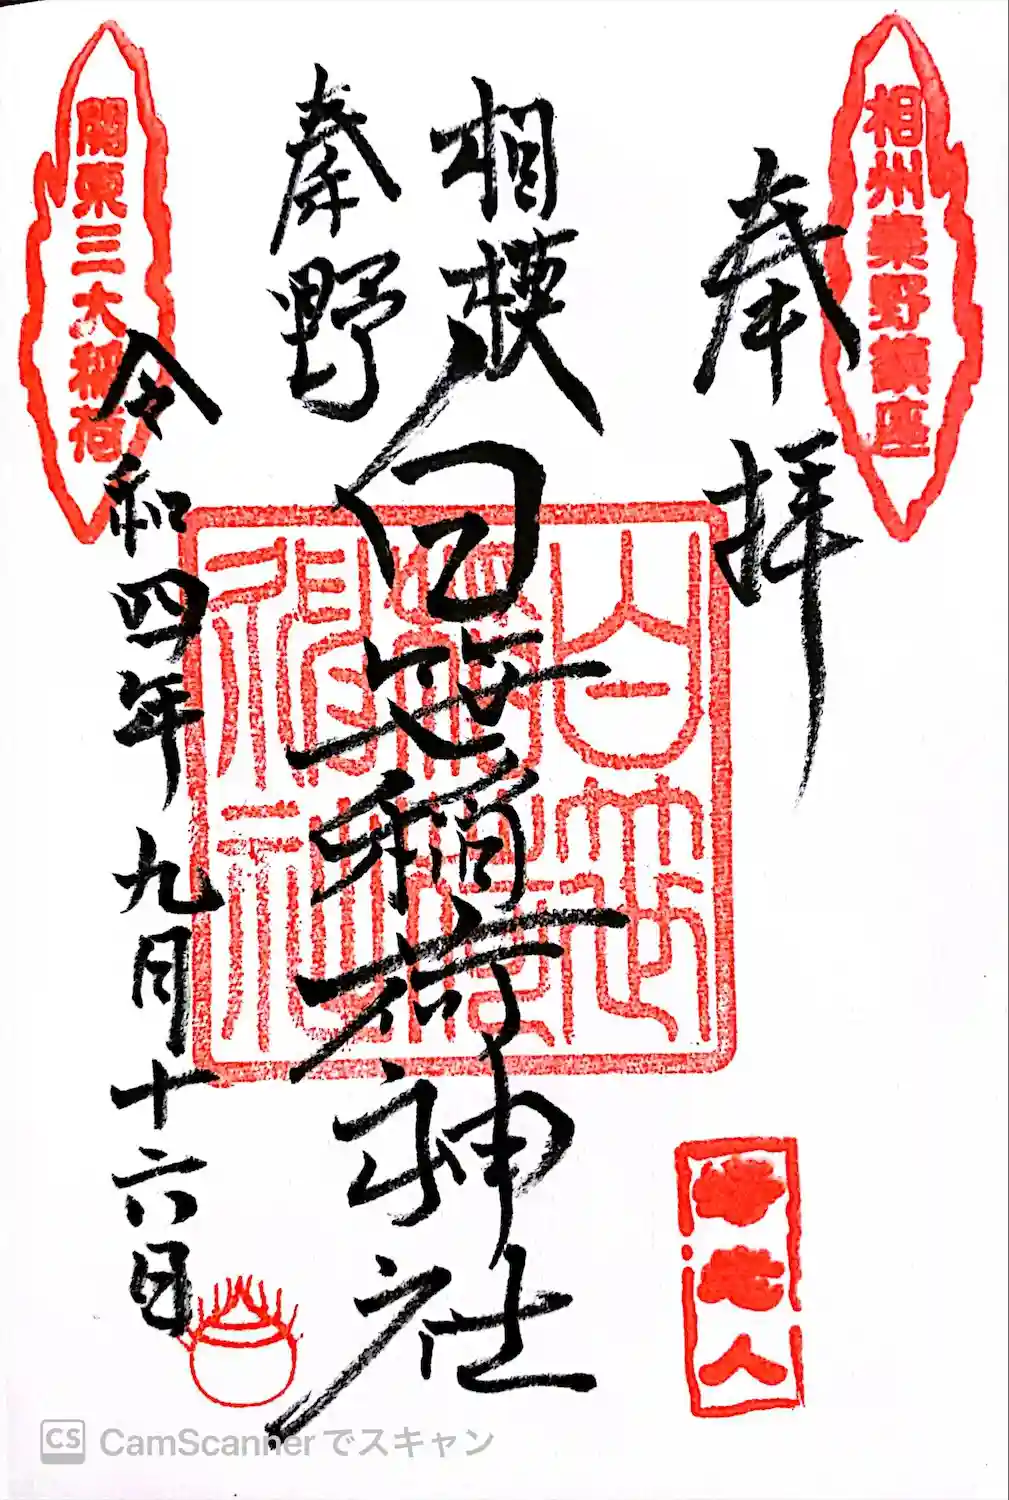 相州秦野鎮座
奉拝
相模
秦野
白笹稲荷神社
関東三大稲荷
令和四年九月十六日
白笹
稲荷
神社
人
CS CamScannerでスキャン